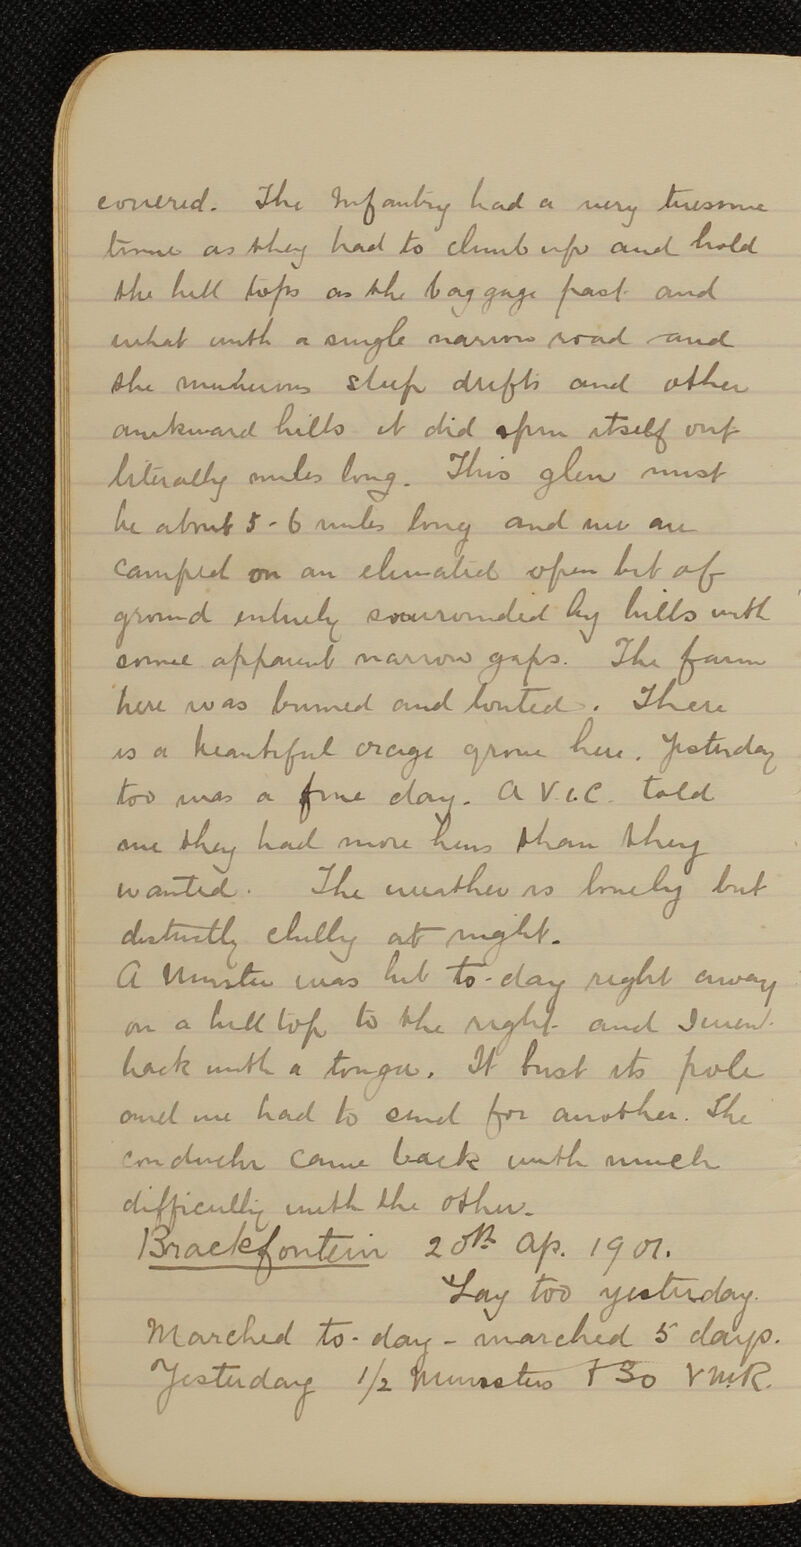 covered. The Infantry had a very tiresome
time as they had to climb up and hold
the hill tops as the baggage past and
what with a single narrow road and
the numerous steep drifts and other
awkward hills it did spin itself out
literally miles long. This glen must
be about 5-6 miles long and we are
camped on an elevated open bit of
ground entirely sourrounded by hills with
some apparent narrow gaps. The farm
here was burned and looted. There
is a beautiful orage grove here. Yesterday
too was a fine day. A V.I.C. told
me they had more hens than they
wanted. The weather is lovely but
distinctly chilly at night.
A Munster was hit to-day right away
on a hill top to the right and I went
back with a tonga. It bust its pole
and we had to send for another. The
conductor came back with much
difficulty with the other.
Brackfontein 20th Ap. 1901.
Lay too yesterday.
Marched to-day - marched 5 days.
Yesterday 1/2 Munsters + 30 V.M.R.